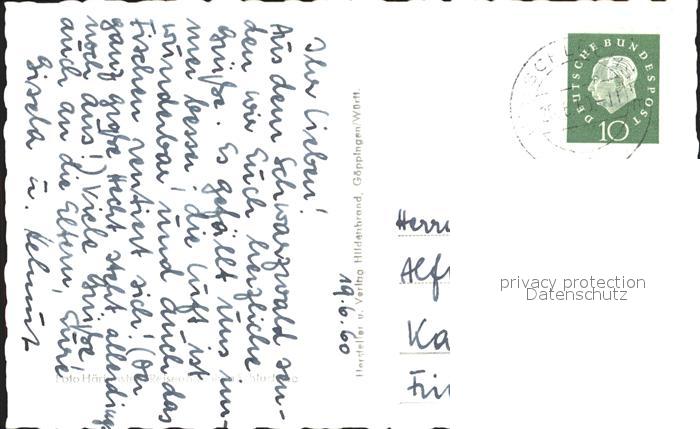 Ihr Lieben!
Aus dem Schwarzwald sen-
den wir Euch herzliche
Grüße. Es gefällt uns im-
mer besser, die Luft ist
wunderbar und auch das
Fischen rentiert sich! (Der
ganz große Hecht steht allerdings
noch aus!) Viele Grüße
auch an die Eltern! Eure
Gisela u. Helmut
19.6.60
Hersteller u. Verlag Hildenbrand, Göppingen/Württ.
DEUTSCHE BUNDESPOST
10
Herrn
Alf
Ka
privacy protection
Datenschutz